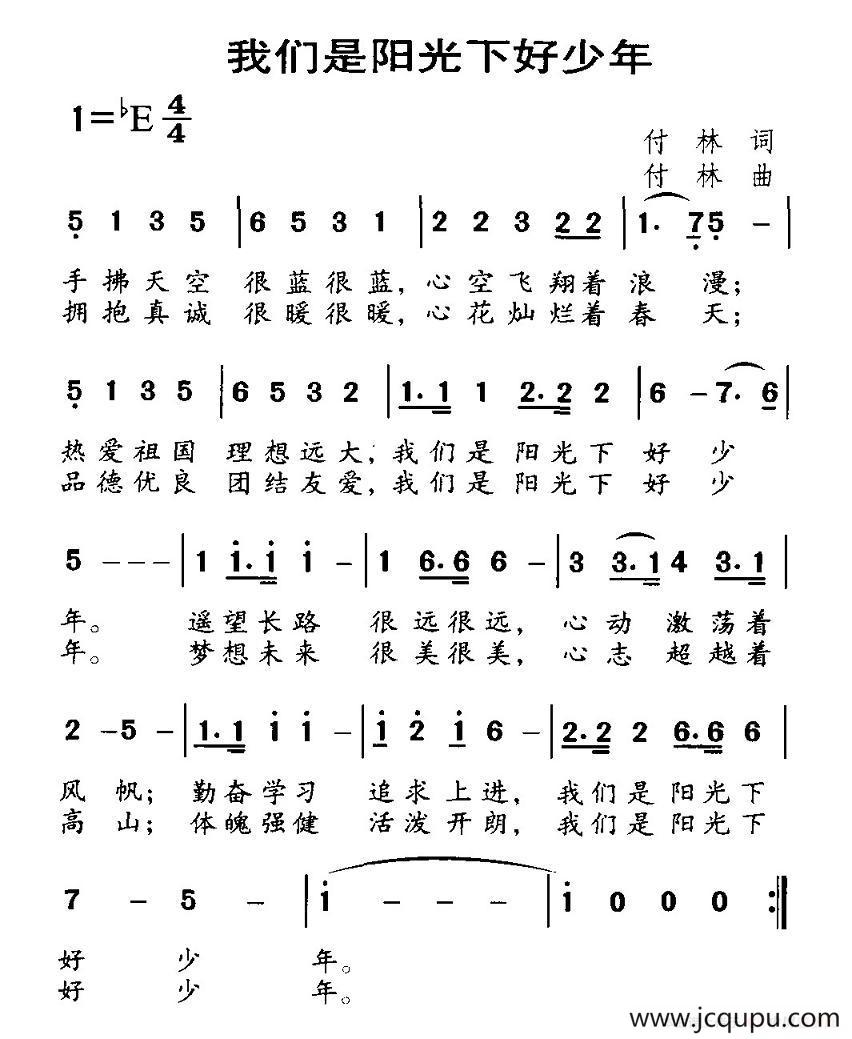 我们是阳光下好少年
1=♭E 4/4
付 林 词
付 林 曲
5̣ 1 3 5 | 6 5 3 1 | 2 2 3 2 2 | 1. 7̣ 5̣ – |
手拂天空 很蓝很蓝，心空飞翔着浪 漫；
拥抱真诚 很暖很暖，心花灿烂着春 天；
5̣ 1 3 5 | 6 5 3 2 | 1. 1 1 2. 2 2 | 6 – 7. 6 |
热爱祖国 理想远大，我们是 阳光下 好 少
品德优良 团结友爱，我们是 阳光下 好 少
5 – – – | 1 i. i i – | 1 6. 6 6 – | 3 3. 1 4 3. 1 |
年。 遥望长路 很远很远， 心动 激荡着
年。 梦想未来 很美很美， 心志 超越着
2 – 5 – | 1. 1 i i – | i 2̇ i 6 – | 2. 2 2 6. 6 6 |
风 帆； 勤奋学习 追求上进， 我们是 阳光下
高 山； 体魄强健 活泼开朗， 我们是 阳光下
7 – 5 – | i – – – | i 0 0 0 :‖
好 少 年。
好 少 年。
www.jcqupu.com